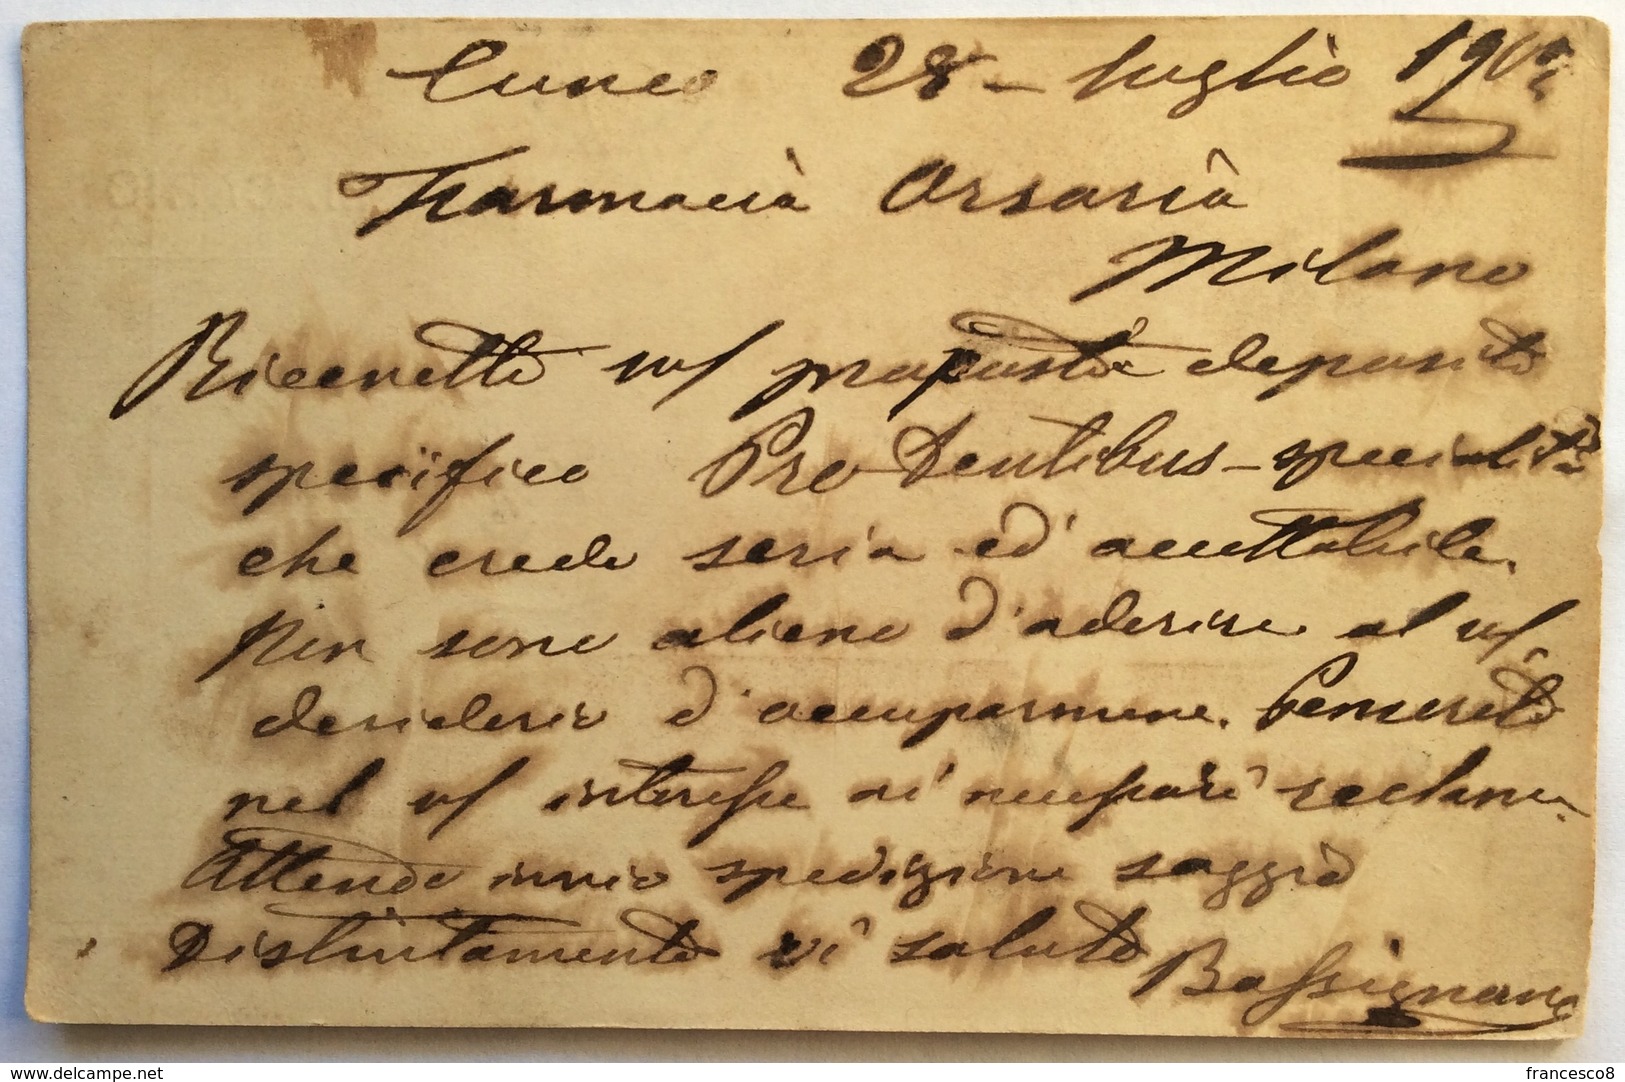 Cuneo 28 - luglio
Farmacia Orsaria
Milano
v/ proposta deposito
specifico Pro Dentibus - specialità
che credo seria ed accettabile.
Non sono alieno d'aderire al v/
desiderio d'occuparmene.
nel v/ interesse
Attendo invio spedizione saggio
Distintamente vi saluto
Bassignano
www.delcampe.net
francesco8